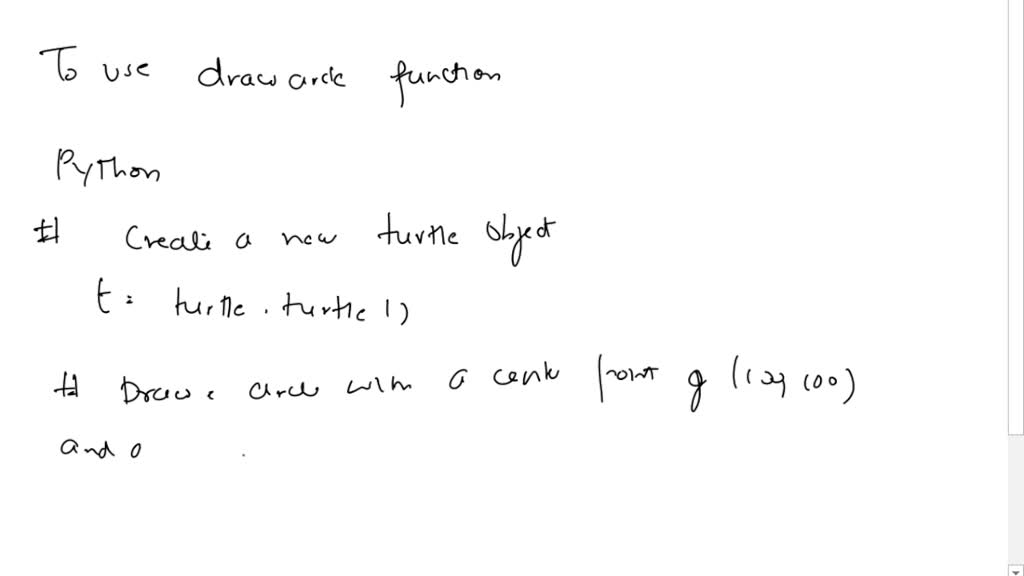 To use draw circle function
Python
# Create a new turtle object
t = turtle . turtle ()
# Draw a circle with a center point of (100, 100)
and a